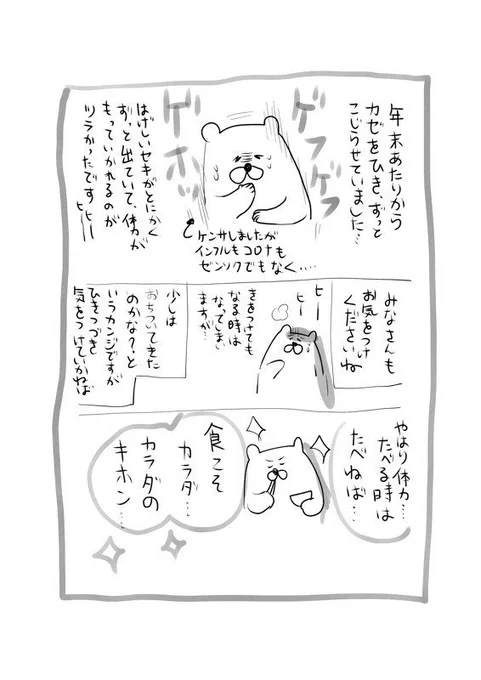 年末あたりから
カゼをひき、ずっと
こじらせていました…
ゲフゲフ
ゲホッ
はげしいセキがとにかく
ずっと出ていて、体力が
もっていかれるのが
ツラかったです
ヒー
ケンサしましたが
インフルもコロナも
ゼンソクでもなく….
みなさんも
お気をつけ
くださいね
ヒー
ヒー
きをつけても
なる時は
なってしまい
ますが…
少しは
おちついてきた
のかな?、と
いうカンジですが
ひきつづき
気をつけていかねば
やはり体力…
たべる時は
たべねば…
食こそ
カラダ…
カラダの
キホン…